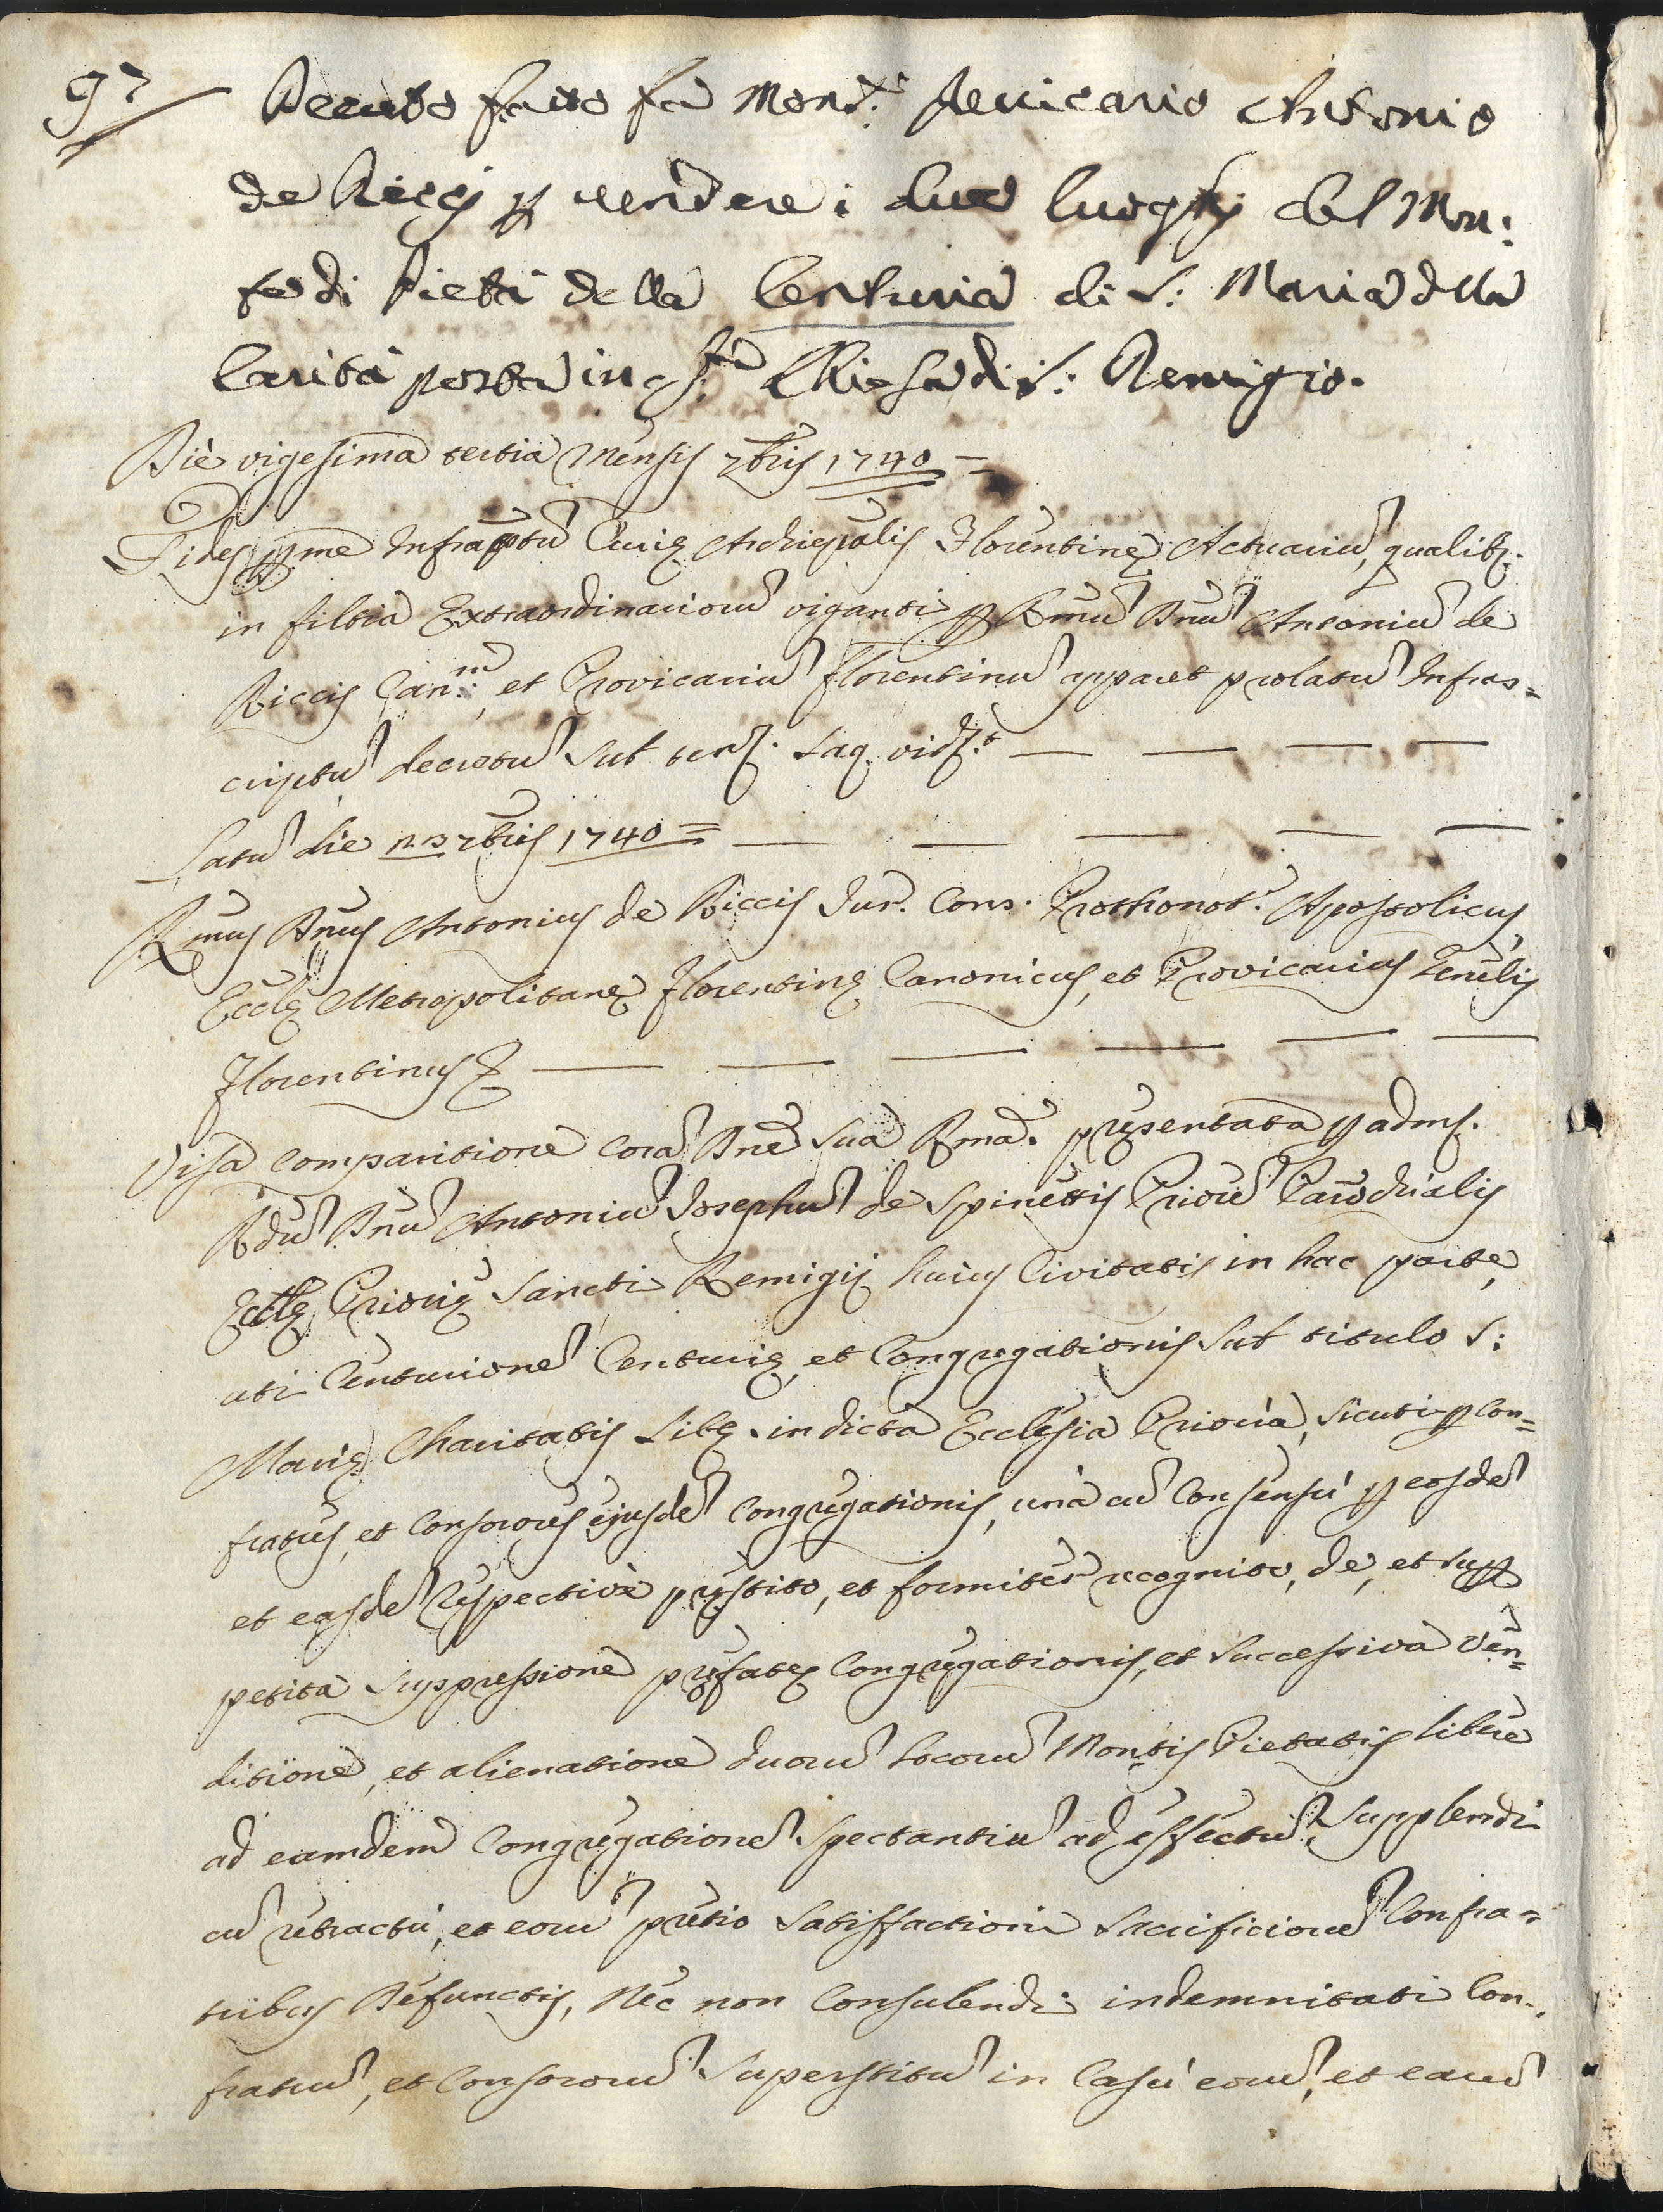 97
Decreto fatto fa Mons.r Reuicario Antonio
de Ricci p uendere i due luoghi del Mon:
te di Pietà della Centuria di S: Maria della
Carità posta in q.sta Chiesa di S: Remigio.
Die vigesima tertia Mensis 7bris 1740 =
Fides p me Infraptũ Curię Archiepalis Florentinę Actuariũ, qualitr.
in filtia Extraordinariorũ viganti p Rmũ Dnũ Antoniũ de
Riccis Can.m, et Provicariũ Florentinũ apparet prolatũ Infras=
criptũ decretũ sub tenr. saq. vidt.
Latũ die 23 7bris 1740 =
Rmus Dnus Antonius de Riccis Jur. Cons. Prothonot.s Apostolicus,
Eccłę Metropolitanę Florentinę Canonicus, et Provicarius Genełis
Florentinus &
Visa Comparitione corã Dne sua Rma. pręsentata p adm.
Rdũ Dnũ Antoniũ Josephũ de Spinettis Priorẽ Parochialis
Eccłę Priorię Sancti Remigij huius Civitatis in hac parte,
uti Centurionẽ Centurię, et Congregationis sub titulo S:
Marię Charitatis sitę. in dicta Ecclesia Prioria, sicuti p con=
fratres, et consorores ejusdẽ Congregationis, unà cũ consensù p eosdẽ
et easdẽ respectivè pręstito, et formiter recognito, de, et sup
petita suppressione pręfatę Congregationis, et successiva Ven=
ditione, et alienatione duorũ Locorũ Montis Pietatis liberè
ad eamdem Congregationẽ spectantiũ ad effectũ supplendi
cũ retractù, et eorũ pretio satisfactioni sacrificiorũ Confra=
tribus Defunctis, Nec non Consulendi indemnitati Con-
fratrũ, et Consororũ superstitũ in Casù eorũ, et earũ